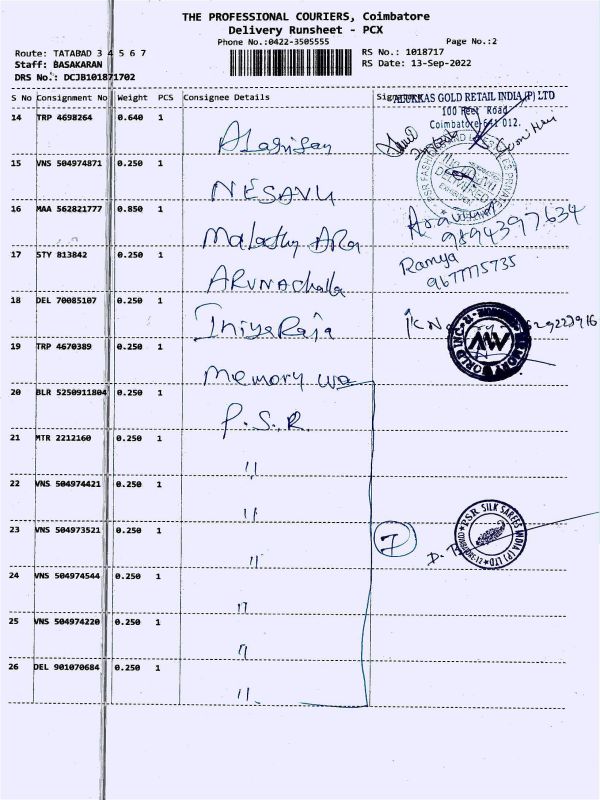 THE PROFESSIONAL COURIERS, Coimbatore
Delivery Runsheet - PCX
Phone No.:0422-3505555 Page No.:2
Route: TATABAD 3 4 5 6 7 RS No.: 1018717
Staff: BASAKARAN RS Date: 13-Sep-2022
DRS No.: DCJB101871702
S No Consignment No Weight PCS Consignee Details Signature
ALUKKAS GOLD RETAIL INDIA (P) LTD
100 Feet Road
Coimbatore-641 012.
14 TRP 4698264 0.640 1
15 VNS 504974871 0.250 1 NESAVU
16 MAA 562821777 0.850 1 Malathy
9894397634
17 STY 813842 0.250 1 ARUNAchalla
Ramya
9677775735
18 DEL 70085107 0.250 1 IniyaRaja
19 TRP 4670389 0.250 1 Memory wo
MEMORY WORLD INC.
20 BLR 5250911804 0.250 1 P.S.R.
21 MTR 2212160 0.250 1 "
22 VNS 504974421 0.250 1 "
23 VNS 504973521 0.250 1 " 7
P.S.R. SILK SAREES INDIA (P) LTD
24 VNS 504974544 0.250 1 "
25 VNS 504974220 0.250 1 "
26 DEL 901070684 0.250 1 "